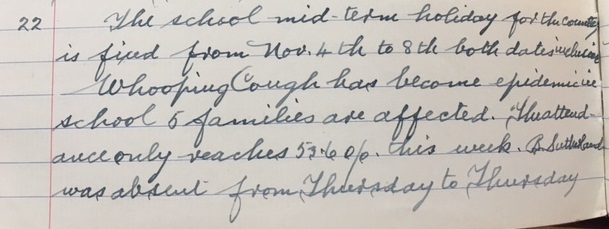 22 The school mid-term holiday for the county
is fixed from Nov. 4th to 8th both dates inclusive
Whooping Cough has become epidemic in
school 5 families are affected. The attend-
ance only reaches % this week. B. Sutherland
was absent from Thursday to Thursday